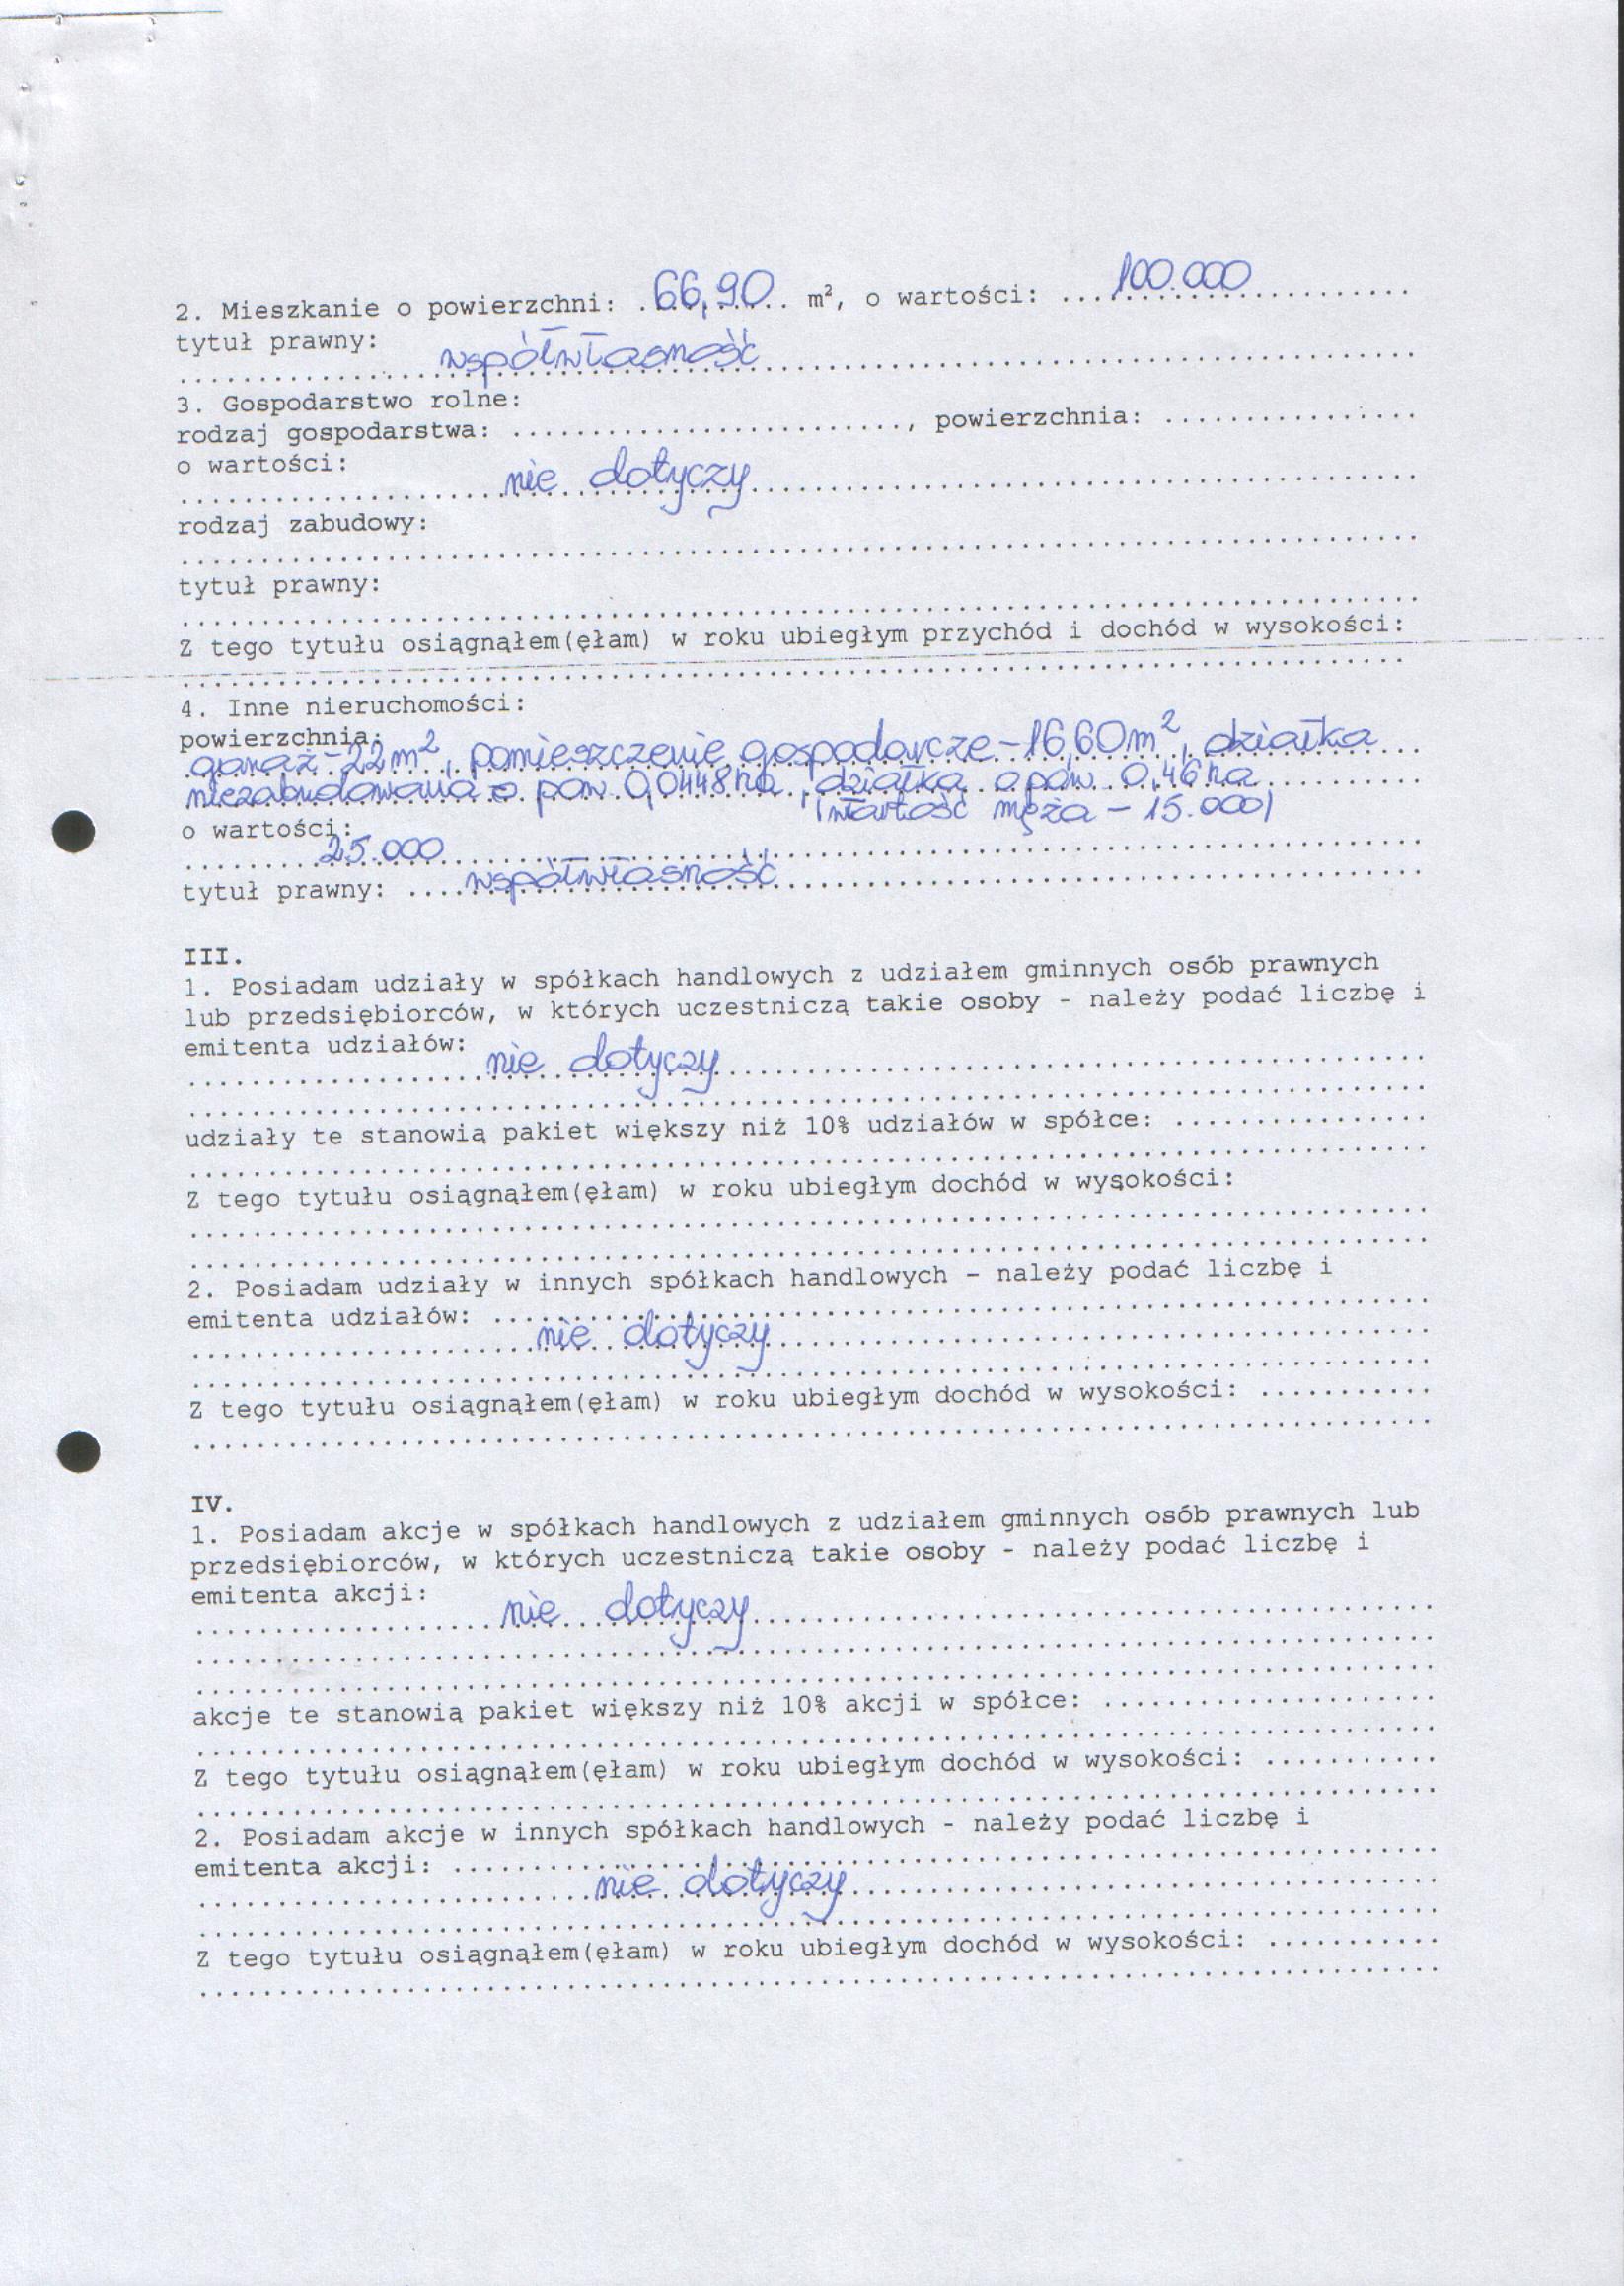 2. Mieszkanie o powierzchni: .66,90.. m², o wartości: ...100.000..........
tytuł prawny:
................współwłasność........................................
3. Gospodarstwo rolne:
rodzaj gospodarstwa: ........................., powierzchnia: ................
o wartości:
.....................nie dotyczy..........................................
rodzaj zabudowy:
...............................................................................
tytuł prawny:
...............................................................................
Z tego tytułu osiągnąłem(ęłam) w roku ubiegłym przychód i dochód w wysokości:
...............................................................................
4. Inne nieruchomości:
powierzchnia:
garaż - 22 m², pomieszczenie gospodarcze - 16,60 m², działka
niezabudowana o pow. 0,0448 ha, działka o pow. 0,46 ha
(wartość męża - 15.000)
o wartości:
.........25.000..............................................................
tytuł prawny: ....współwłasność.........................................
III.
1. Posiadam udziały w spółkach handlowych z udziałem gminnych osób prawnych
lub przedsiębiorców, w których uczestniczą takie osoby - należy podać liczbę i
emitenta udziałów:
...................nie dotyczy.............................................
...............................................................................
udziały te stanowią pakiet większy niż 10% udziałów w spółce: ................
...............................................................................
Z tego tytułu osiągnąłem(ęłam) w roku ubiegłym dochód w wysokości:
...............................................................................
...............................................................................
2. Posiadam udziały w innych spółkach handlowych - należy podać liczbę i
emitenta udziałów: ............................................................
......................nie dotyczy..........................................
...............................................................................
Z tego tytułu osiągnąłem(ęłam) w roku ubiegłym dochód w wysokości: ...........
...............................................................................
IV.
1. Posiadam akcje w spółkach handlowych z udziałem gminnych osób prawnych lub
przedsiębiorców, w których uczestniczą takie osoby - należy podać liczbę i
emitenta akcji:
...................nie dotyczy.............................................
...............................................................................
...............................................................................
akcje te stanowią pakiet większy niż 10% akcji w spółce: .....................
...............................................................................
Z tego tytułu osiągnąłem(ęłam) w roku ubiegłym dochód w wysokości: ...........
...............................................................................
2. Posiadam akcje w innych spółkach handlowych - należy podać liczbę i
emitenta akcji: ...............................................................
.........................nie dotyczy.......................................
...............................................................................
Z tego tytułu osiągnąłem(ęłam) w roku ubiegłym dochód w wysokości: ...........
...............................................................................